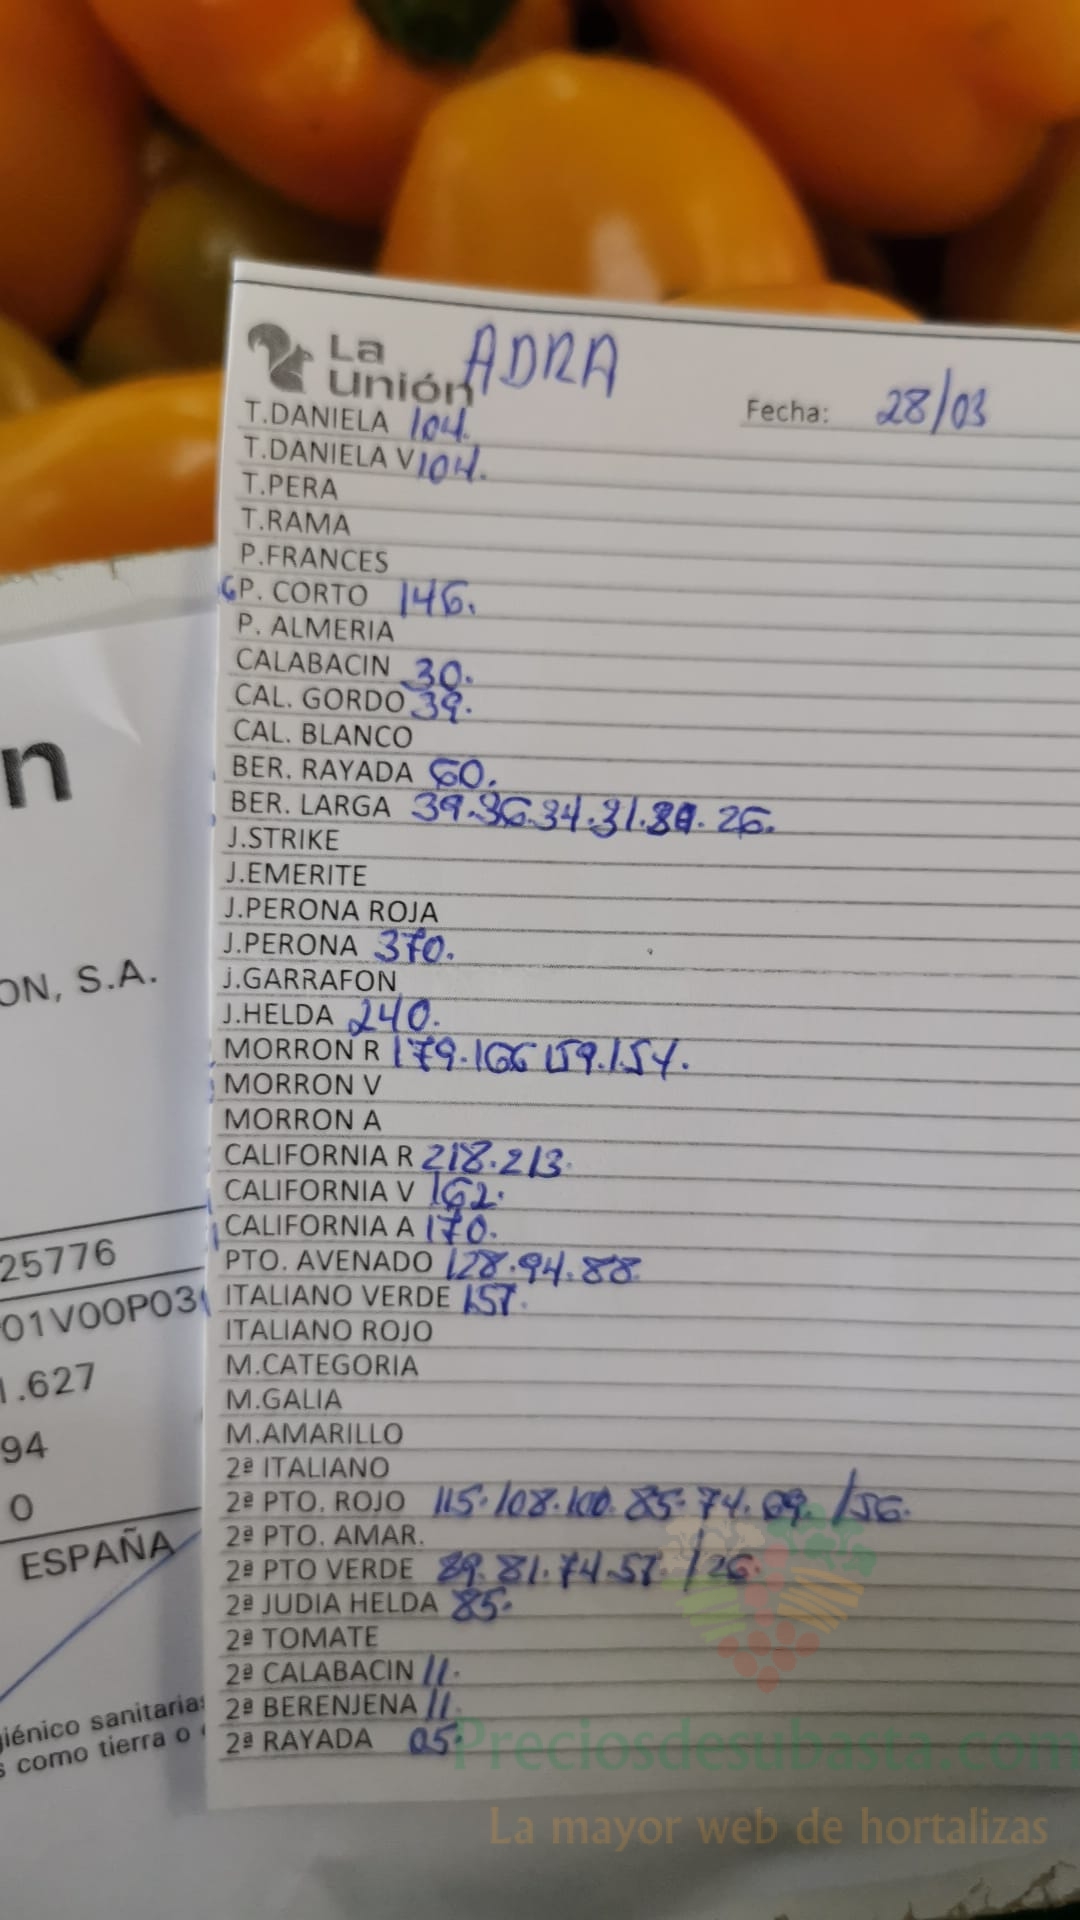 La
unión ADRA
Fecha: 28/03
T.DANIELA 104.
T.DANIELA V 104.
T.PERA
T.RAMA
P.FRANCES
P. CORTO 146.
P. ALMERIA
CALABACIN 30.
CAL. GORDO 39.
CAL. BLANCO
BER. RAYADA 60.
BER. LARGA 39.36.34.31.30. 26.
J.STRIKE
J.EMERITE
J.PERONA ROJA
J.PERONA 370.
J.GARRAFON
J.HELDA 240.
MORRON R 179.166 159.154.
MORRON V
MORRON A
CALIFORNIA R 218.213.
CALIFORNIA V 162.
CALIFORNIA A 170.
PTO. AVENADO 128.94.88
ITALIANO VERDE 157.
ITALIANO ROJO
M.CATEGORIA
M.GALIA
M.AMARILLO
2ª ITALIANO
2ª PTO. ROJO 115.108.100.85.74.69. /56.
2ª PTO. AMAR.
2ª PTO VERDE 89.81.74.57. /26.
2ª JUDIA HELDA 85.
2ª TOMATE
2ª CALABACIN 11.
2ª BERENJENA 11.
2ª RAYADA 05.
n
ON, S.A.
25776
01V00P03
1.627
94
0
ESPAÑA
giénico sanitarias
s como tierra o
Preciosdesubasta.com
La mayor web de hortalizas